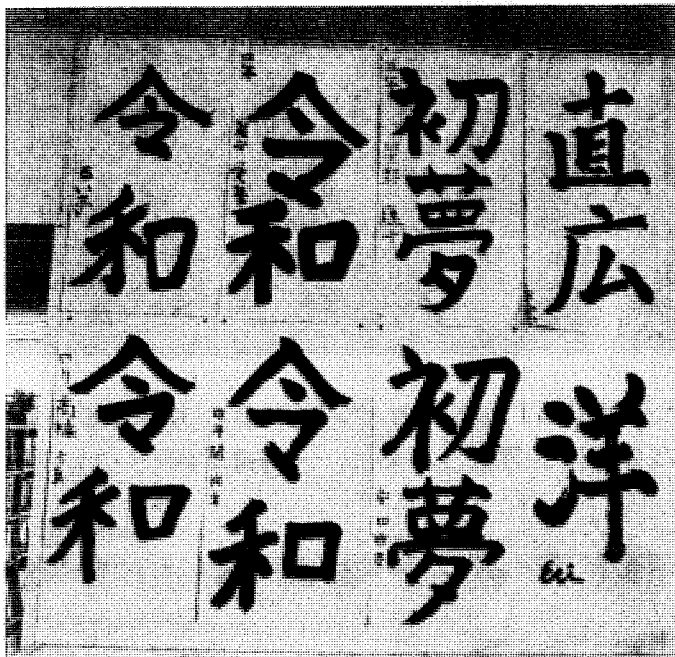 直広
初夢
令和
令和
洋
Eri
初夢
令和
令和